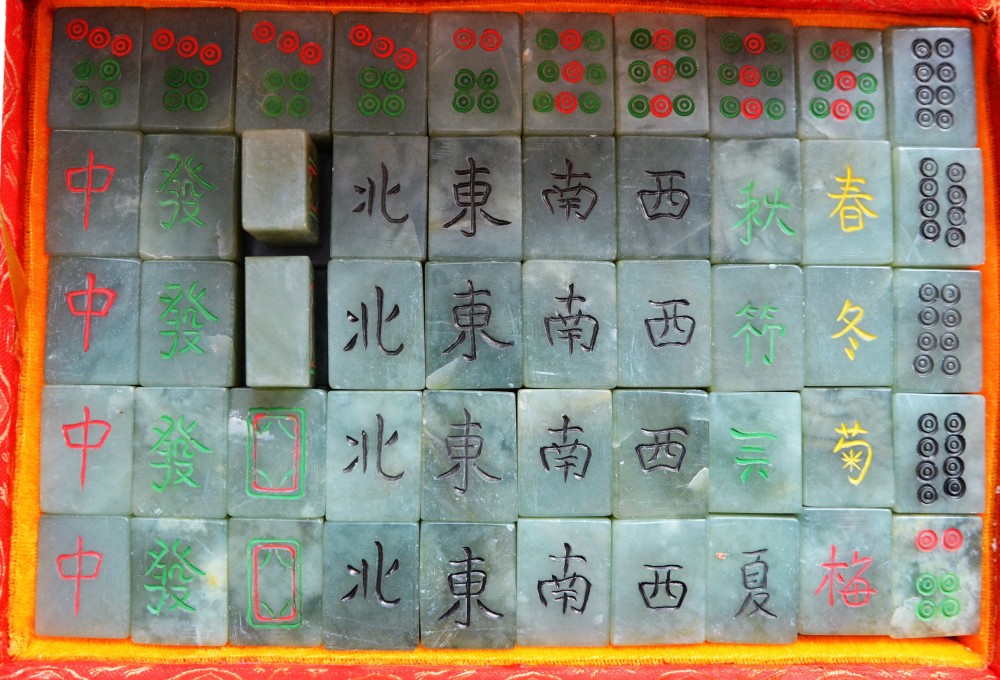 中 發 北 東 南 西 秋 春
中 發 北 東 南 西 竹 冬
中 發 北 東 南 西 菊
中 發 北 東 南 西 夏 梅